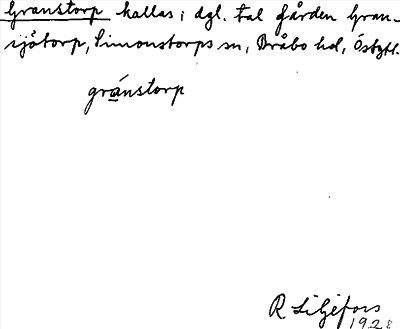 Granstorp kallas i dgl. tal gården Gran-
sjötorp, Simonstorps sn, Bråbo hd, Östgtl.
gránstorp
R Liljefors
1928